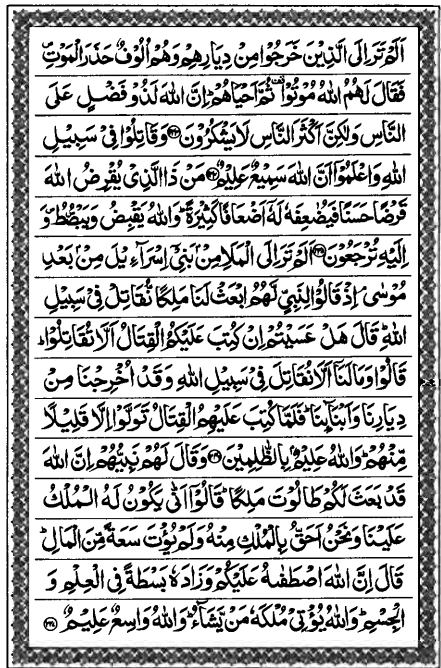 اَلَمْ تَرَ اِلَى الَّذِيْنَ خَرَجُوْا مِنْ دِيَارِهِمْ وَهُمْ اُلُوْفٌ حَذَرَ الْمَوْتِ
فَقَالَ لَهُمُ اللّٰهُ مُوْتُوْا ثُمَّ اَحْيَاهُمْ ؕ اِنَّ اللّٰهَ لَذُوْ فَضْلٍ عَلَى
النَّاسِ وَلٰكِنَّ اَكْثَرَ النَّاسِ لَا يَشْكُرُوْنَ ﴿۲۴۳﴾ وَقَاتِلُوْا فِيْ سَبِيْلِ
اللّٰهِ وَاعْلَمُوْۤا اَنَّ اللّٰهَ سَمِيْعٌ عَلِيْمٌ ﴿۲۴۴﴾ مَنْ ذَا الَّذِيْ يُقْرِضُ اللّٰهَ
قَرْضًا حَسَنًا فَيُضٰعِفَهٗ لَهٗۤ اَضْعَافًا كَثِيْرَةً ؕ وَاللّٰهُ يَقْبِضُ وَيَبْصُۜطُ وَ
اِلَيْهِ تُرْجَعُوْنَ ﴿۲۴۵﴾ اَلَمْ تَرَ اِلَى الْمَلَاِ مِنْۢ بَنِيْۤ اِسْرَآءِيْلَ مِنْۢ بَعْدِ
مُوْسٰى ۘ اِذْ قَالُوْا لِنَبِيٍّ لَّهُمُ ابْعَثْ لَنَا مَلِكًا نُّقَاتِلْ فِيْ سَبِيْلِ
اللّٰهِ ؕ قَالَ هَلْ عَسَيْتُمْ اِنْ كُتِبَ عَلَيْكُمُ الْقِتَالُ اَلَّا تُقَاتِلُوْا ؕ
قَالُوْا وَمَا لَنَاۤ اَلَّا نُقَاتِلَ فِيْ سَبِيْلِ اللّٰهِ وَقَدْ اُخْرِجْنَا مِنْ
دِيَارِنَا وَاَبْنَآئِنَا ؕ فَلَمَّا كُتِبَ عَلَيْهِمُ الْقِتَالُ تَوَلَّوْا اِلَّا قَلِيْلًا
مِّنْهُمْ ؕ وَاللّٰهُ عَلِيْمٌۢ بِالظّٰلِمِيْنَ ﴿۲۴۶﴾ وَقَالَ لَهُمْ نَبِيُّهُمْ اِنَّ اللّٰهَ
قَدْ بَعَثَ لَكُمْ طَالُوْتَ مَلِكًا ؕ قَالُوْۤا اَنّٰى يَكُوْنُ لَهُ الْمُلْكُ
عَلَيْنَا وَنَحْنُ اَحَقُّ بِالْمُلْكِ مِنْهُ وَلَمْ يُؤْتَ سَعَةً مِّنَ الْمَالِ ؕ
قَالَ اِنَّ اللّٰهَ اصْطَفٰىهُ عَلَيْكُمْ وَزَادَهٗ بَسْطَةً فِي الْعِلْمِ وَ
الْجِسْمِ ؕ وَاللّٰهُ يُؤْتِيْ مُلْكَهٗ مَنْ يَّشَآءُ ؕ وَاللّٰهُ وَاسِعٌ عَلِيْمٌ ﴿۲۴۷﴾